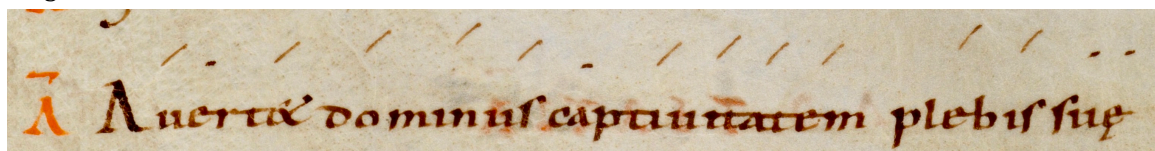 A Auert& dominus captiuitatem plebis suę